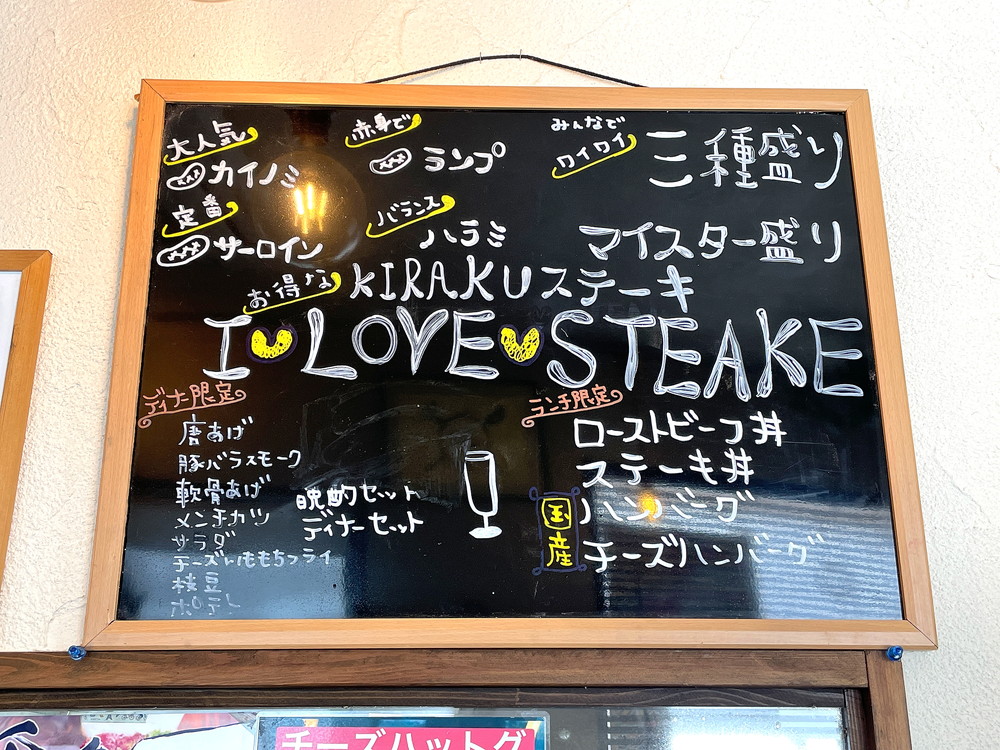 大人気
カイノミ
赤身で
ランプ
みんなで
ワイワイ
三種盛り
定番
サーロイン
バランス
ハラミ
マイスター盛り
お得な
KIRAKUステーキ
I LOVE STEAKE
ディナー限定
唐あげ
豚バラスモーク
軟骨あげ
メンチカツ
サラダ
チーズいももちフライ
枝豆
ポテト
晩酌セット
ディナーセット
ランチ限定
ローストビーフ丼
ステーキ丼
国産
ハンバーグ
チーズハンバーグ
チーズハットグ